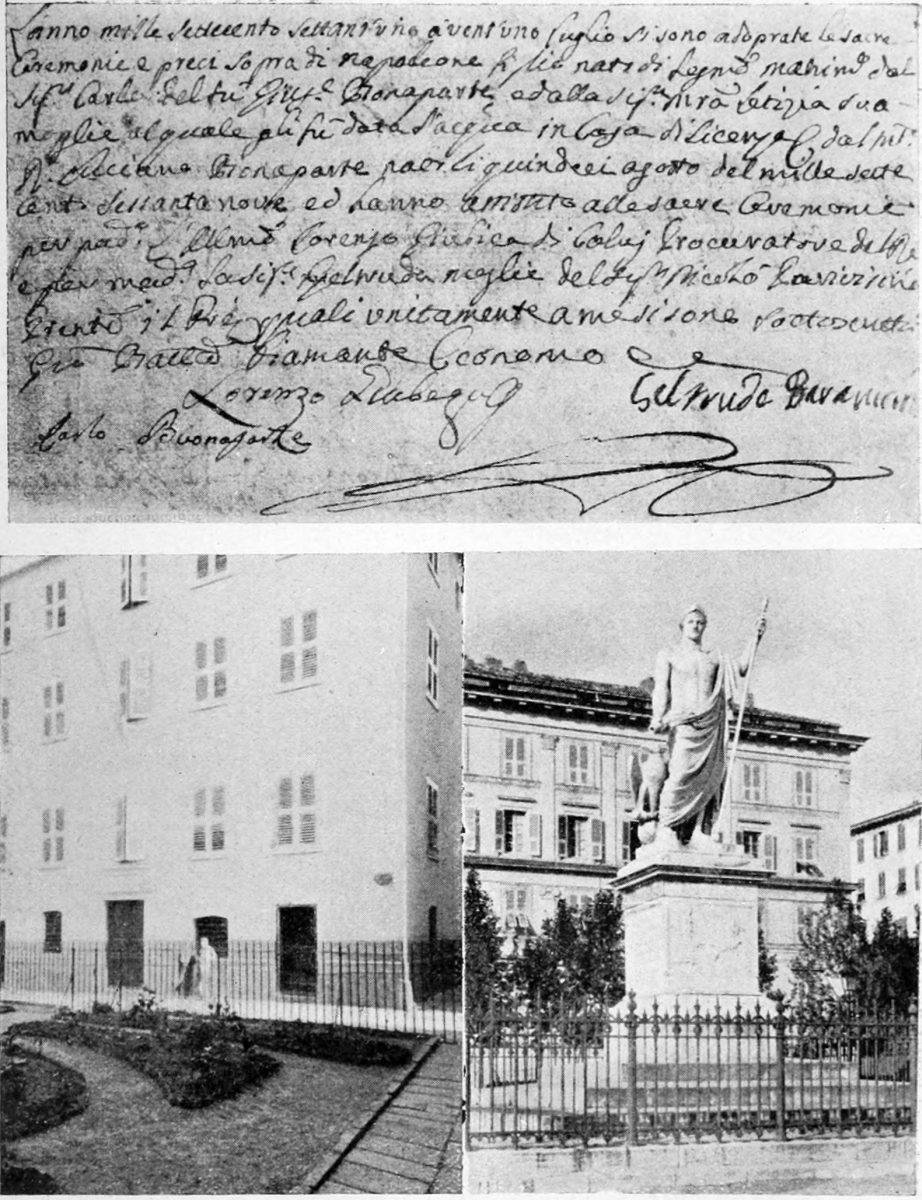 L'anno mille settecento settant'uno a vent'uno luglio si sono adoprate le sacre
Ceremonie e preci sopra di napoleone figlio nato di Legmo. matrimo. dal
Sigr. Carlo del fu Giuse. Bonaparte, ed alla Sigra. Letizia sua
moglie al quale gli fu data l'acqua in Casa di Licenza dal
Luciano Bonaparte nato li quindeci agosto del mille sette
cento sessanta nove ed hanno assistito alle sacre Ceremonie
per pado. Lorenzo Giubica di Calvi Procuratore del Re
e per mada. la Siga. Geltruda moglie del Sigr. Nicolò Paravisino
presente il Pre. quali unitamente a me si sono sottoscritti
Gio Batta Diamante Economo
Lorenzo Giubega Geltruda
Carlo Buonaparte